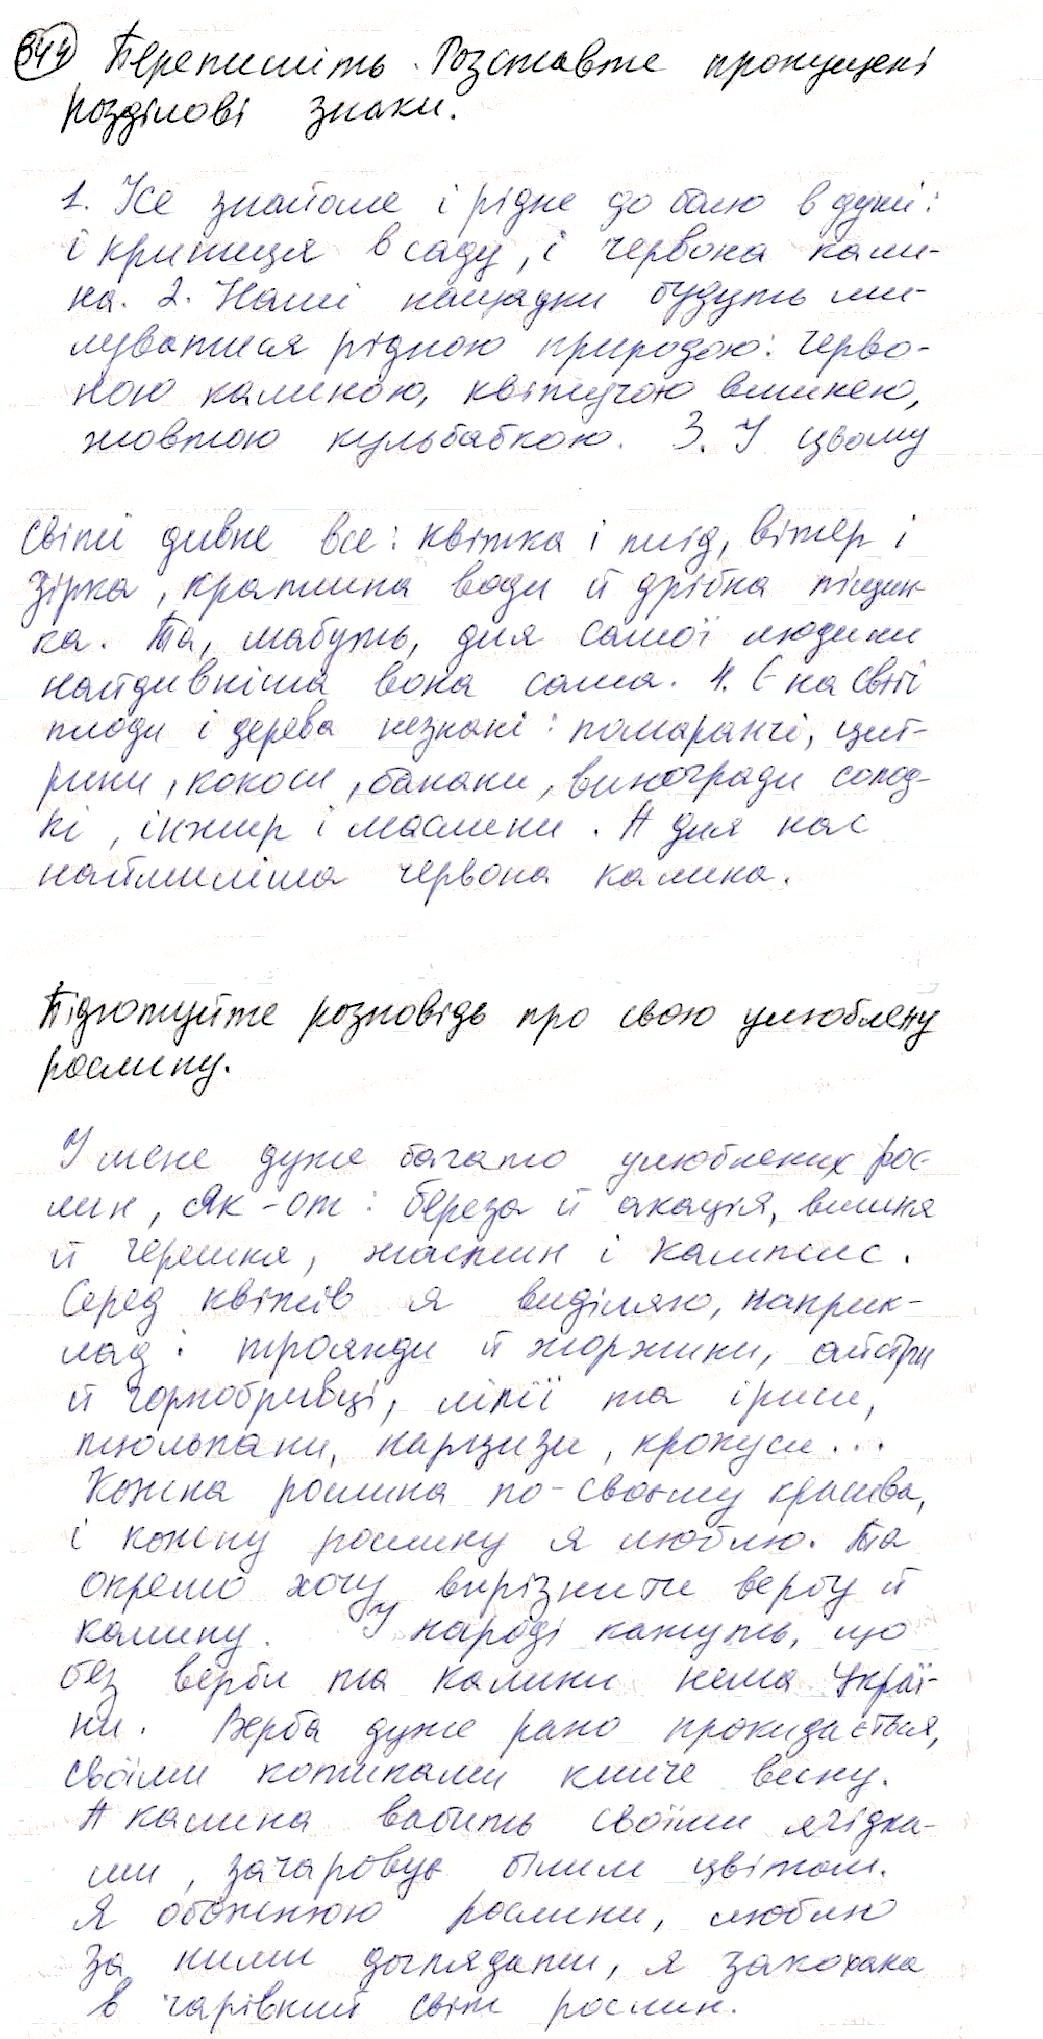 344 Перепишіть. Розставте пропущені
розділові знаки.
1. Усе знайоме і рідне до болю в душі:
і криниця в саду, і червона кали-
на. 2. Наші нащадки будуть ми-
луватися рідною природою: черво-
ною калиною, квітучою вишнею,
жовтою кульбабкою. 3. У цьому
світі дивне все: квітка і плід, вітер і
зірка, краплина води й дрібна піщин-
ка. Та, мабуть, для самої людини
найдивніша вона сама. 4. Є на світі
плоди і дерева незнані: помаранчі, цит-
рини, кокоси, банани, виногради солод-
кі, інжир і маслини. А для нас
наймиліша червона калина.
Підготуйте розповідь про свою улюблену
рослину.
У мене дуже багато улюблених рос-
лин, як-от: береза й акація, вишня
й черешня, жасмин і кампсис.
Серед квітів я виділяю, наприк-
лад: троянди й жоржини, айстри
й чорнобривці, лілії та іриси,
тюльпани, нарцизи, крокуси...
Кожна рослина по-своєму красива,
і кожну рослину я люблю. Та
окремо хочу вирізнити вербу й
калину. У народі кажуть, що
без верби та калини нема Украї-
ни. Верба дуже рано прокидається,
своїми котиками кличе весну.
А калина вабить своїми ягідка-
ми, зачаровує білим цвітом.
Я обожнюю рослини, люблю
за ними доглядати, я закохана
в чарівний світ рослин.